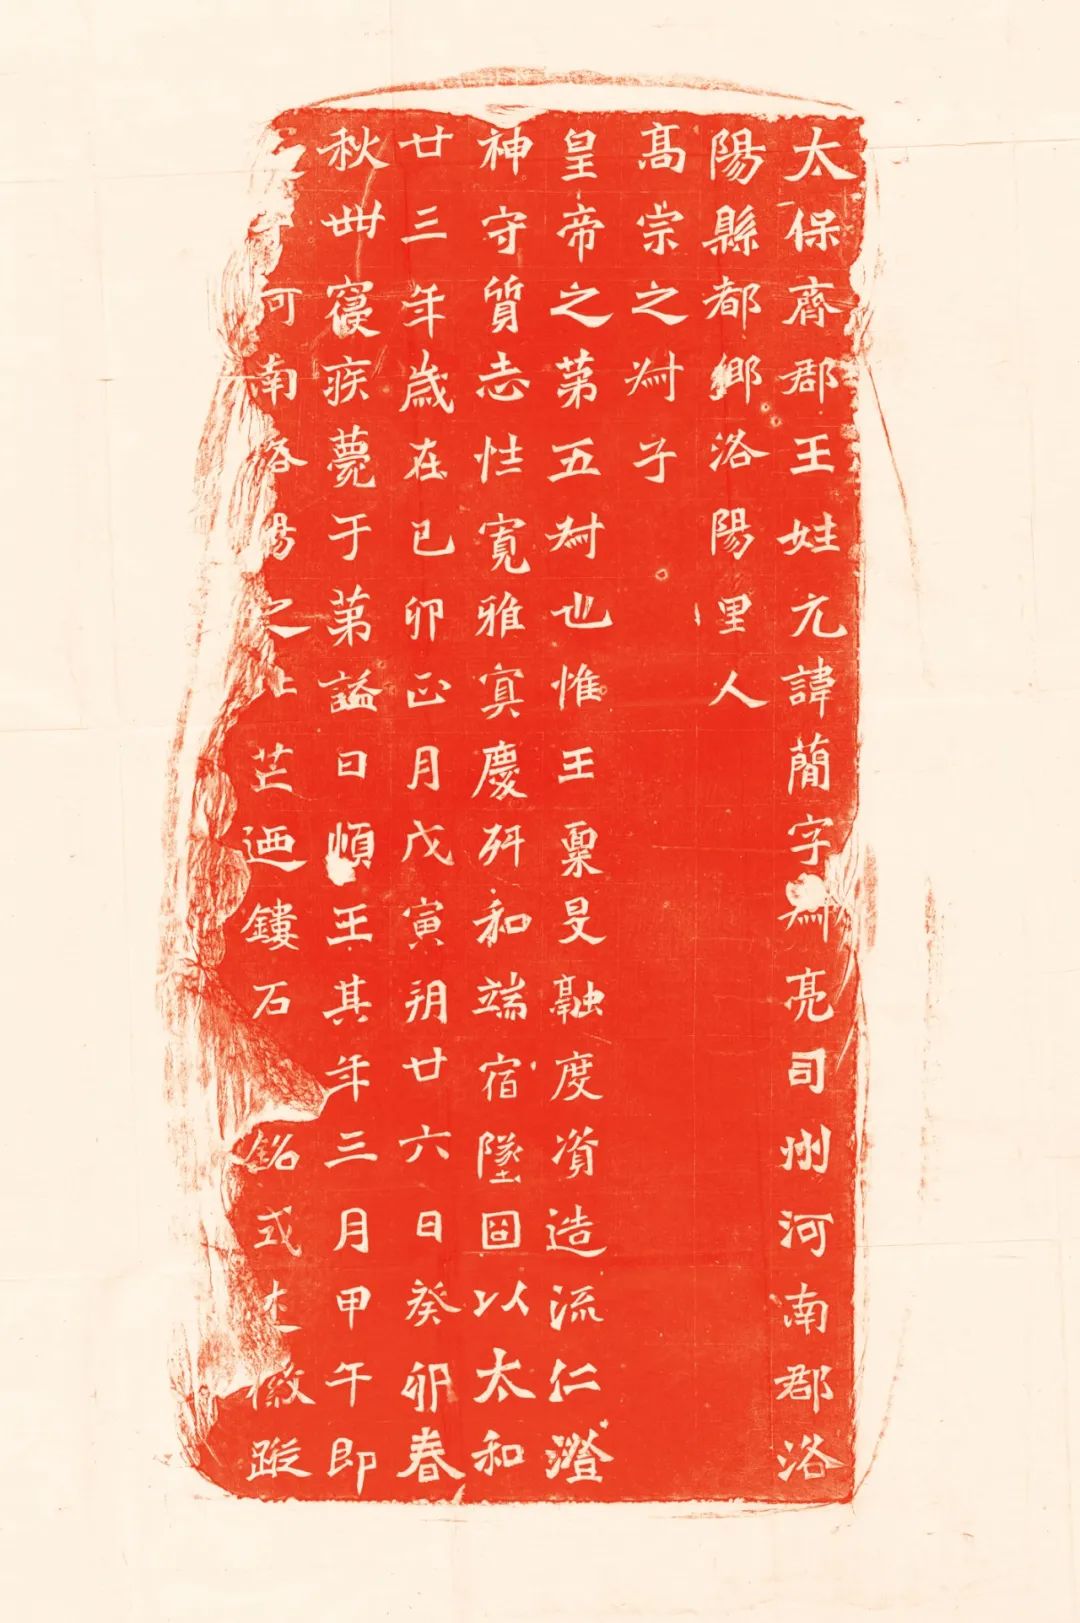 太保齊郡王姓元諱蕳字叔亮司州河南郡洛
陽縣都鄉洛陽里人
高宗之叔子
皇帝之第五叔也惟王稟旻融度資造流仁澄
神守質志性寬雅寘慶列和端宿墜固以太和
廿三年歲在己卯正月戊寅朔廿六日癸卯春
秋卌寢疾薨于第謚曰順王其年三月甲午即
河南洛陽之北芒迺鏤石銘式述徽蹤